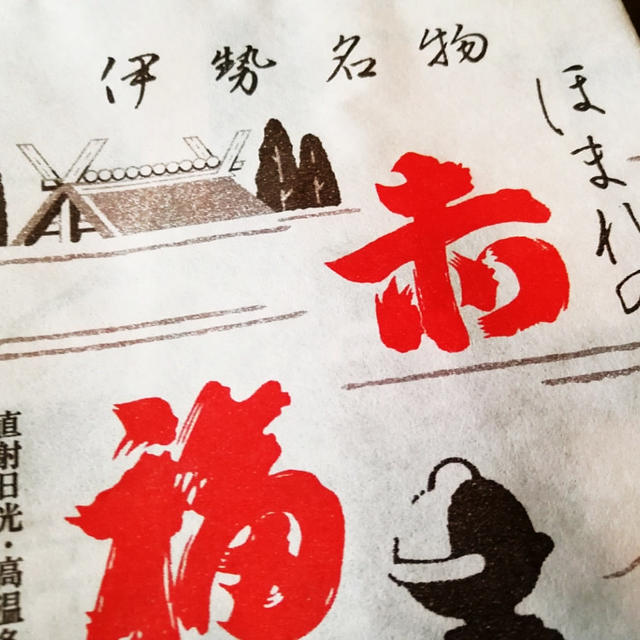 伊勢名物
ほまれの
赤
福
直射日光・高温多